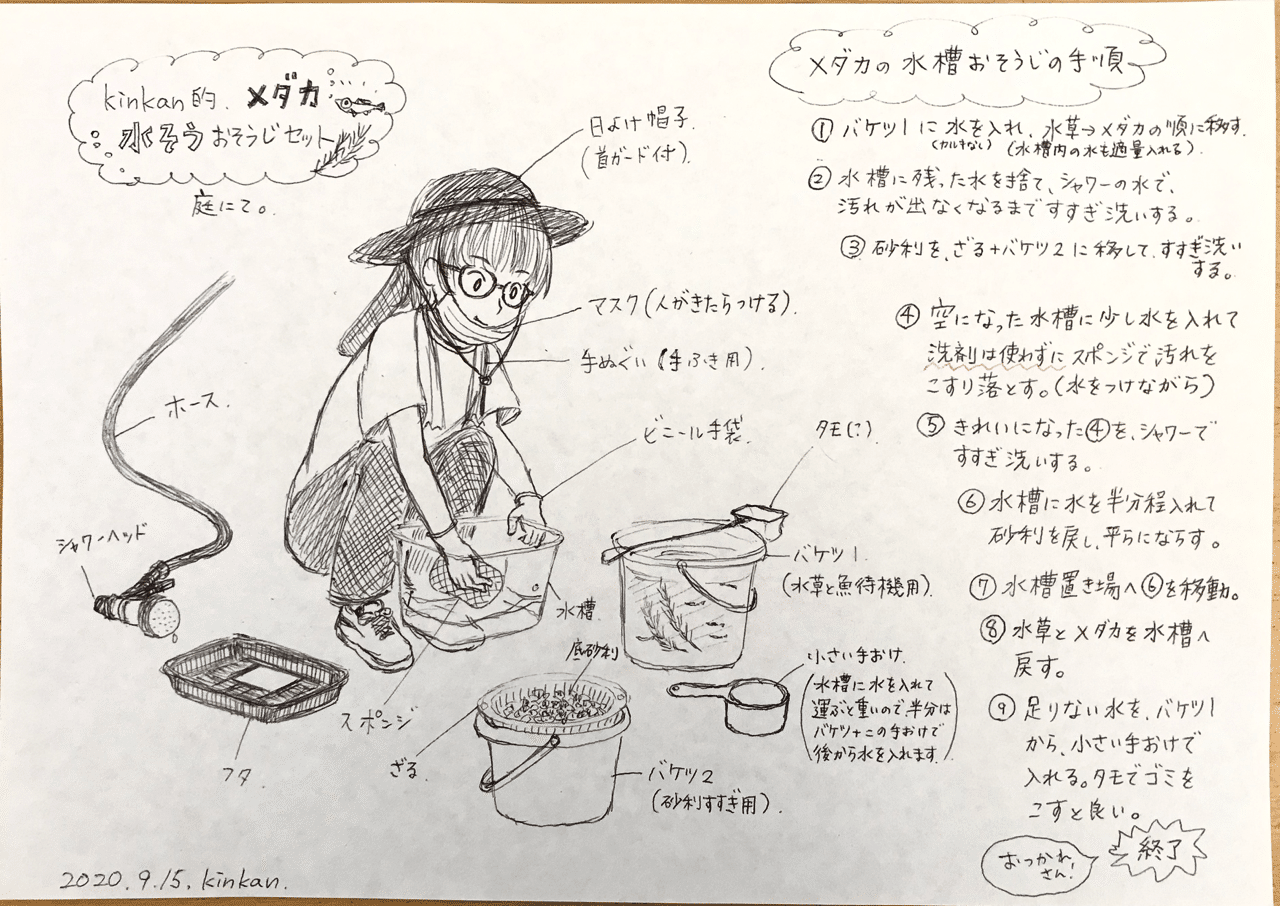 kinkan的、メダカ
水そうおそうじセット
庭にて。
日よけ帽子
(首ガード付).
マスク(人がきたらつける).
手ぬぐい(手ふき用).
ホース.
ビニール手袋.
タモ(こ).
シャワーヘッド
バケツ1.
(水草と魚待機用).
水槽
底砂利
小さい手おけ.
(水槽に水を入れて
運ぶと重いので、半分は
バケツ+この手おけで
後から水を入れます.)
スポンジ
フタ
ざる.
バケツ2
(砂利すすぎ用).
2020.9.15. kinkan.
メダカの水槽おそうじの手順
① バケツ1に水を入れ、水草→メダカの順に移す.
(カルキなし) (水槽内の水も適量入れる).
② 水槽に残った水を捨て、シャワーの水で、
汚れが出なくなるまですすぎ洗いする。
③ 砂利を、ざる+バケツ2に移して、すすぎ洗い
する。
④ 空になった水槽に少し水を入れて
洗剤は使わずにスポンジで汚れを
こすり落とす。(水をつけながら)
⑤ きれいになった④を、シャワーで
すすぎ洗いする。
⑥ 水槽に水を半分程入れて
砂利を戻し、平らにならす。
⑦ 水槽置き場へ⑥を移動。
⑧ 水草とメダカを水槽へ
戻す。
⑨ 足りない水を、バケツ1
から、小さい手おけで
入れる。タモでゴミを
こすと良い。
終了
おつかれ
さん!